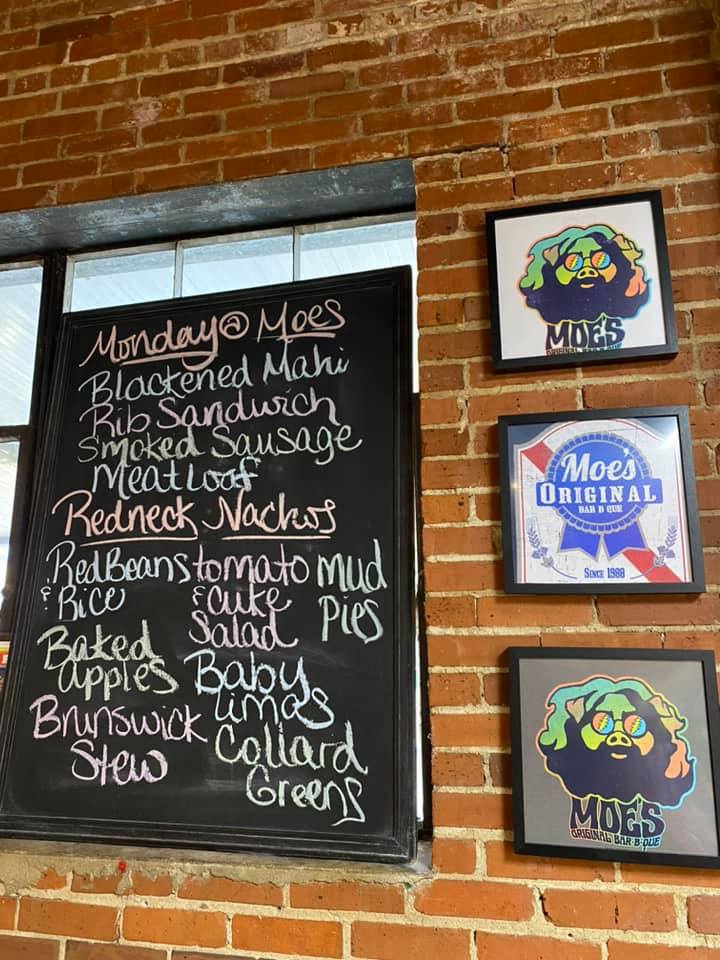 Monday @ Moes
Blackened Mahi
Rib Sandwich
Smoked Sausage
Meatloaf
Redneck Nachos
Red Beans
& Rice
Baked
apples
Brunswick
Stew
tomato
& cuke
Salad
Baby
limas
Collard
Greens
mud
pies
MOE'S
ORIGINAL BAR-B-QUE
Moe's
ORIGINAL
BAR B QUE
SINCE 1988
MOE'S
ORIGINAL BAR-B-QUE